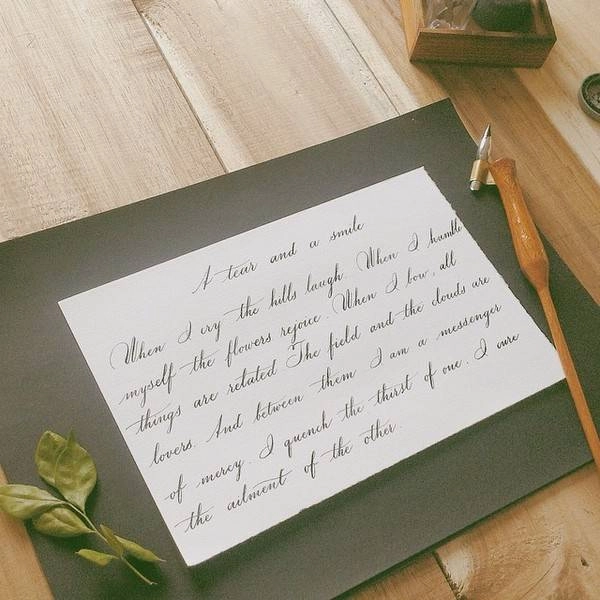 A tear and a smile
When I cry the hills laugh. When I humble
myself the flowers rejoice. When I bow, all
things are retated The field and the clouds are
lovers. And between them I am a messenger
of mercy. I quench the thirst of one. I cure
the ailment of the other.